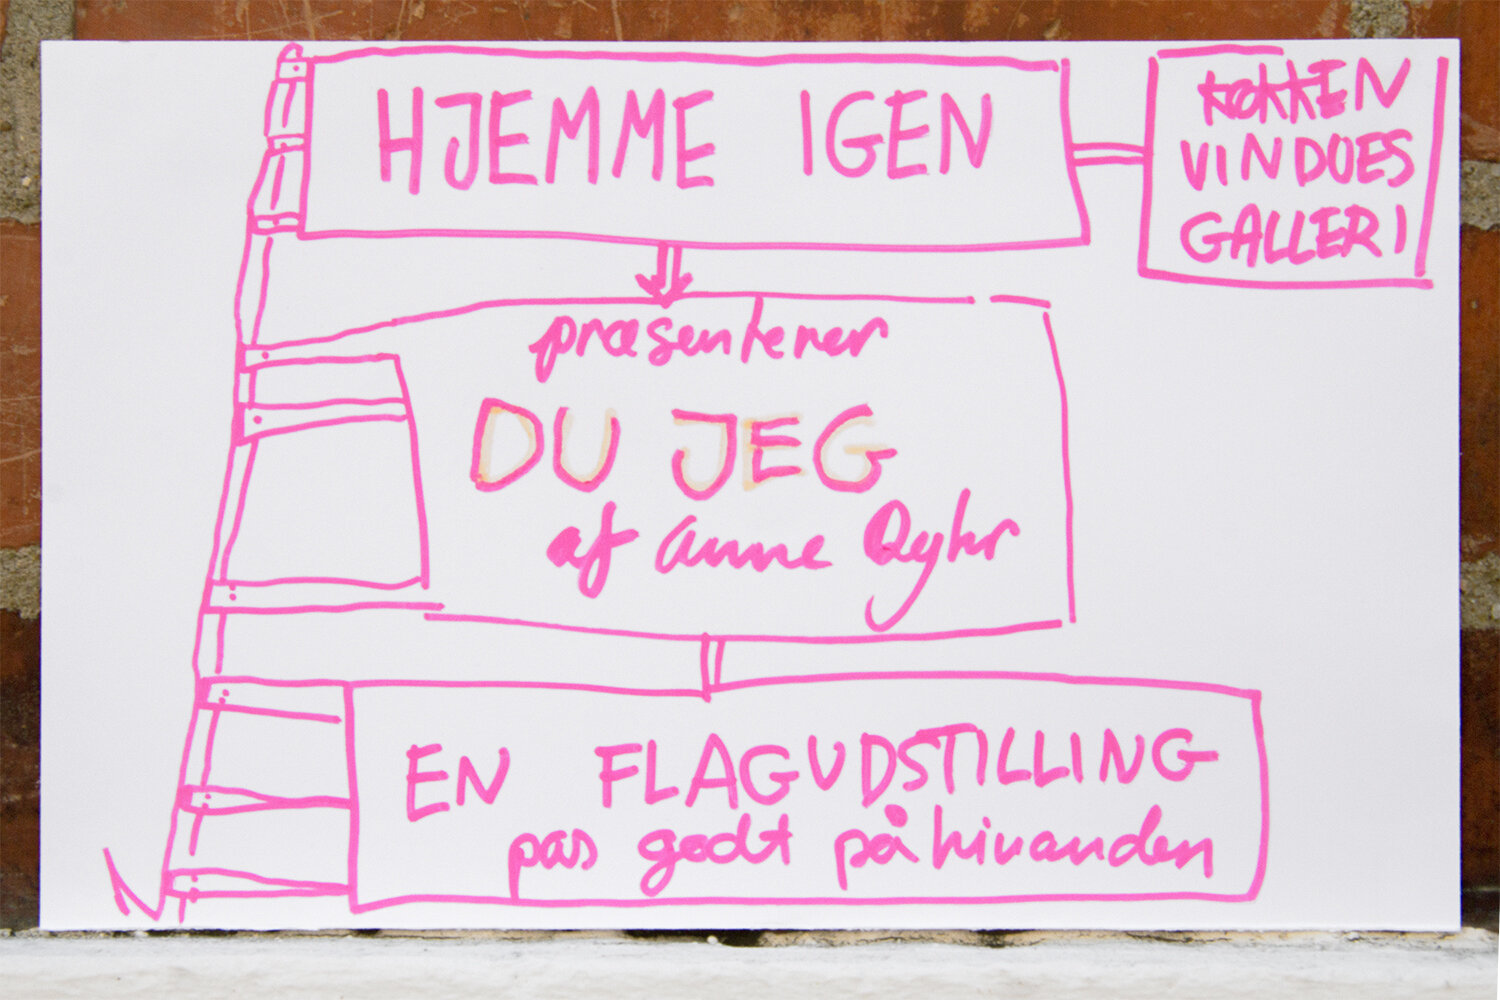 HJEMME IGEN
KØKKEN
VINDOES
GALLERI
præsenterer
DU JEG
af Anne
EN FLAGUDSTILLING
pas godt på hinanden